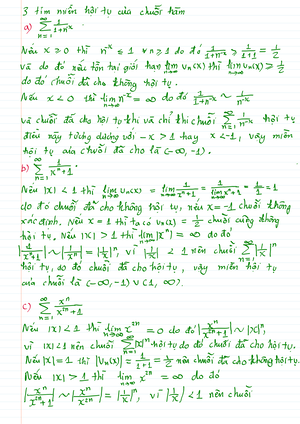 3 tìm miền hội tụ của chuỗi hàm
a) ∑_{n=1}^{∞} 1/(1+n^{-x})
Nếu x ≥ 0 thì n^{-x} ≤ 1 ∀n≥1 do đó 1/(1+n^{-x}) ≥ 1/(1+1) = 1/2
và do đó nếu tồn tại giới hạn lim_{n→∞} u_n(x) thì lim_{n→∞} u_n(x) ≥ 1/2
do đó chuỗi đã cho không hội tụ.
Nếu x < 0 thì lim_{n→∞} n^{-x} = ∞ do đó 1/(1+n^{-x}) ~ 1/n^{-x}
và chuỗi đã cho hội tụ khi và chỉ khi chuỗi ∑_{n=1}^{∞} 1/n^{-x} hội tụ
điều này tương đương với -x > 1 hay x < -1, vậy miền
hội tụ của chuỗi đã cho là (-∞, -1).
b) ∑_{n=1}^{∞} 1/(x^n+1).
Nếu |x| < 1 thì lim_{n→∞} u_n(x) = lim_{n→∞} 1/(x^n+1) = 1/(lim_{n→∞} x^n+1) = 1/1 = 1
do đó chuỗi đã cho không hội tụ, nếu x = -1 chuỗi không
xác định. Nếu x = 1 thì ta có u_n(x) = 1/2 chuỗi cũng không
hội tụ. Nếu |x| > 1 thì lim_{n→∞} |x^n| = ∞ do đó
|1/(x^n+1)| ~ |1/x^n| = |1/x|^n, vì |1/x| < 1 nên chuỗi ∑_{n=1}^{∞} |1/x|^n
hội tụ, do đó chuỗi đã cho hội tụ, vậy miền hội tụ
của chuỗi là (-∞, -1) ∪ (1, ∞).
c) ∑_{n=1}^{∞} x^n/(x^{2n}+1)
Nếu |x| < 1 thì lim_{n→∞} x^{2n} = 0 do đó |x^n/(x^{2n}+1)| ~ |x|^n,
vì |x| < 1 nên chuỗi ∑_{n=1}^{∞} |x|^n hội tụ do đó chuỗi đã cho hội tụ.
Nếu |x| = 1 thì |u_n(x)| = 1/(1+1) = 1/2 nên chuỗi đã cho không hội tụ.
Nếu |x| > 1 thì lim_{n→∞} x^{2n} = ∞ do đó
|x^n/(x^{2n}+1)| ~ |x^n/x^{2n}| = |1/x|^n, vì |1/x| < 1 nên chuỗi